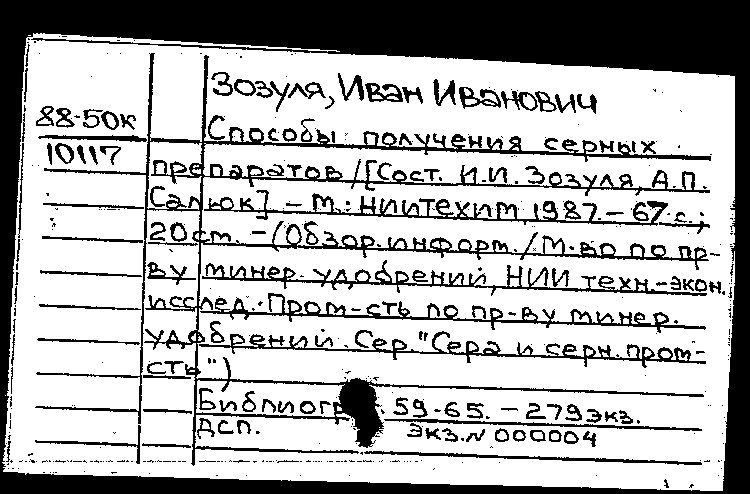 Зозуля, Иван Иванович
88-50к
Способы получения серных
10117
препаратов /[Сост. И.И. Зозуля, А.П.
Салюк] – М.: НИИТЕХИМ, 1987. – 67 с.;
20 см. – (Обзор. информ. / М-во по пр-
ву минер. удобрений, НИИ техн.-экон.
исслед. Пром-сть по пр-ву минер.
удобрений. Сер. "Сера и серн. пром-
сть")
59-65. – 279 экз.
ДСП. экз. N 000004